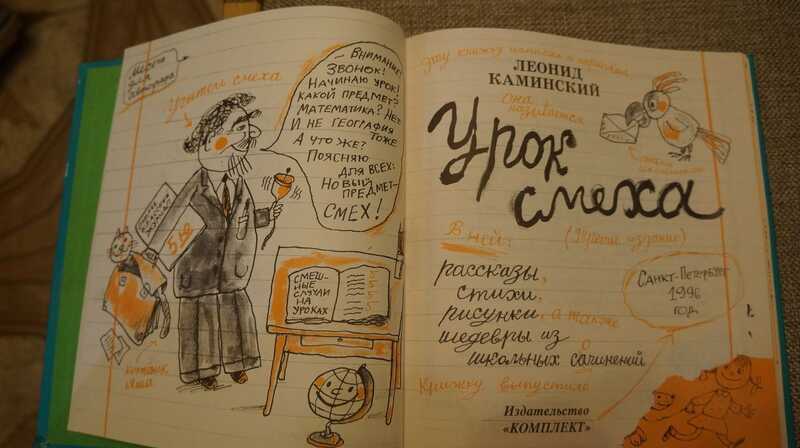 Место
для
автографа
Учитель смеха
— Внимание!
Звонок!
Начинаю урок!
Какой предмет?
Математика? Нет
И не география
тоже
А что же?
Поясняю
для всех:
Новый
предмет—
СМЕХ!
5 "В"
СМЕШ-
НЫЕ
СЛУЧАИ
НА
УРОКАХ
котёнок
Эту книжку написал и нарисовал
ЛЕОНИД
КАМИНСКИЙ
Она
называется
Урок
смеха
В ней:
(Третье издание)
рассказы,
стихи,
рисунки, а также
шедевры из
школьных сочинений
Санкт-Петербург
1996
год
Книжку выпустило
Издательство
«КОМПЛЕКТ»